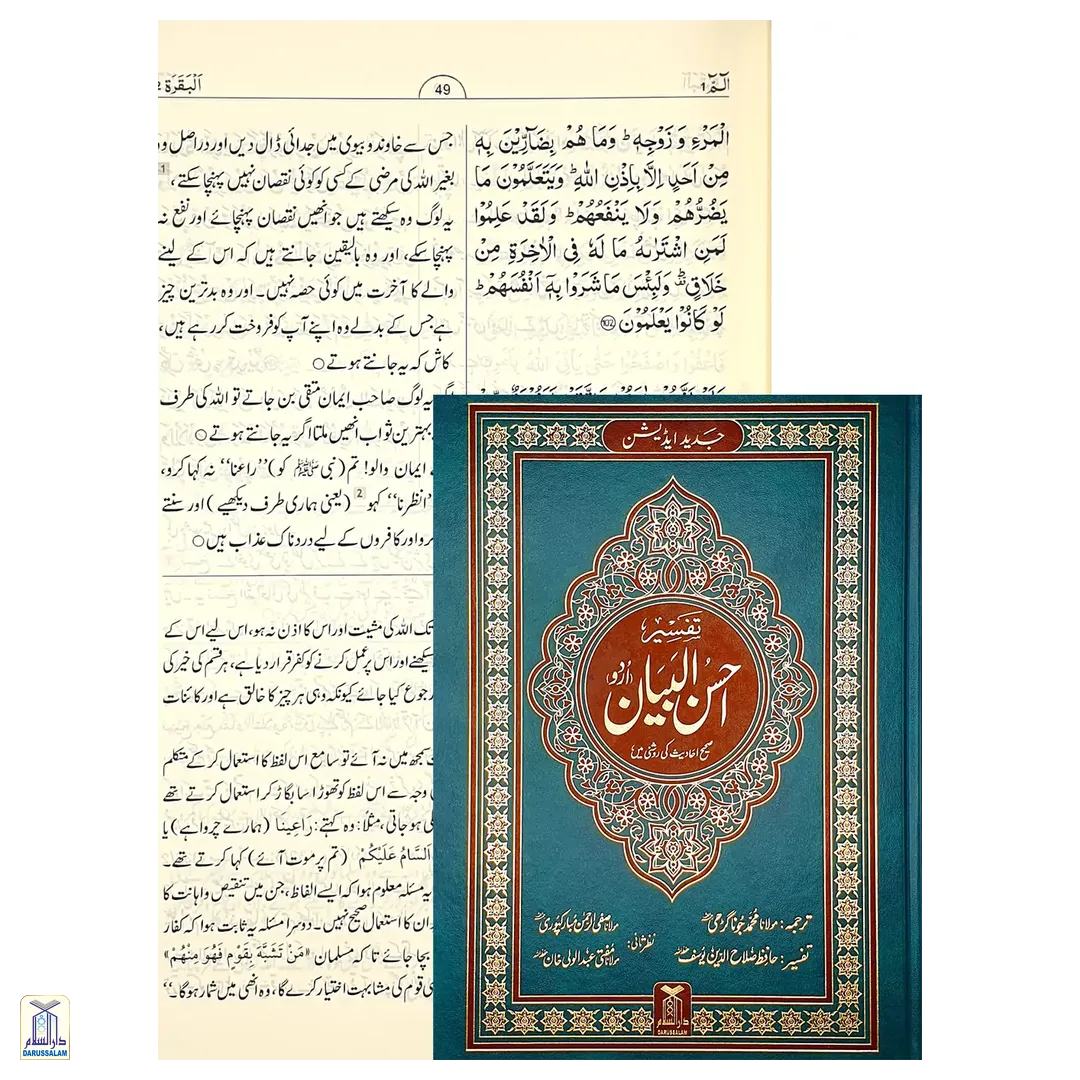 الٓمّٓ 1
49
اَلْبَقَرَة 2
الْمَرْءِ وَ زَوْجِهٖ ؕ وَمَا هُمْ بِضَآرِّيْنَ بِهٖ
مِنْ اَحَدٍ اِلَّا بِاِذْنِ اللّٰهِ ؕ وَيَتَعَلَّمُوْنَ مَا
يَضُرُّهُمْ وَلَا يَنْفَعُهُمْ ؕ وَ لَقَدْ عَلِمُوْا
لَمَنِ اشْتَرٰىهُ مَا لَهٗ فِي الْاٰخِرَةِ مِنْ
خَلَاقٍ ؕ وَلَبِئْسَ مَا شَرَوْا بِهٖۤ اَنْفُسَهُمْ ؕ
لَوْ كَانُوْا يَعْلَمُوْنَ 102
جس سے خاوند و بیوی میں جدائی ڈال دیں اور دراصل وہ
بغیر اللہ کی مرضی کے کسی کو کوئی نقصان نہیں پہنچا سکتے، 1
یہ لوگ وہ سیکھتے ہیں جو انھیں نقصان پہنچائے اور نفع نہ
پہنچا سکے، اور وہ بالیقین جانتے ہیں کہ اس کے لینے
والے کا آخرت میں کوئی حصہ نہیں۔ اور وہ بدترین چیز
ہے جس کے بدلے وہ اپنے آپ کو فروخت کر رہے ہیں،
کاش کہ یہ جانتے ہوتے ○
یہ لوگ صاحب ایمان متقی بن جاتے تو اللہ کی طرف
بہترین ثواب انھیں ملتا اگر یہ جانتے ہوتے ○
ایمان والو! تم (نبی ﷺ کو) ”راعنا“ نہ کہا کرو،
”انظرنا“ کہو 2 (یعنی ہماری طرف دیکھیے) اور سنتے
رہو اور کافروں کے لیے دردناک عذاب ہیں ○
تک اللہ کی مشیت اور اس کا اذن نہ ہو، اس لیے اس کے
سیکھنے اور اس پر عمل کرنے کو کفر قرار دیا ہے، ہر قسم کی خیر کی
رجوع کیا جائے کیونکہ وہی ہر چیز کا خالق ہے اور کائنات
سمجھ میں نہ آئے تو سامع اس لفظ کا استعمال کر کے متکلم
وجہ سے اس لفظ کو تھوڑا سا بگاڑ کر استعمال کرتے تھے
ہو جاتی، مثلاً: وہ کہتے: رَاعِینَا (ہمارے چرواہے) یا
اَلسَّامُ عَلَيْكُمْ (تم پر موت آئے) کہا کرتے تھے۔
یہ مسئلہ معلوم ہوا کہ ایسے الفاظ، جن میں تنقیص و اہانت کا
ان کا استعمال صحیح نہیں۔ دوسرا مسئلہ یہ ثابت ہوا کہ کفار
بچا جائے تا کہ مسلمان «مَنْ تَشَبَّهَ بِقَوْمٍ فَهُوَ مِنْهُمْ»
قوم کی مشابہت اختیار کرے گا، وہ انھی میں شمار ہوگا۔“
جدید ایڈیشن
تفسیر
احسن البیان (اردو)
صحیح احادیث کی روشنی میں
ترجمہ: مولانا محمد جوناگڑھی
تفسیر: حافظ صلاح الدین یوسف
نظرثانی:
مولانا صفی الرحمٰن مبارکپوری
مولانا مفتی عبدالولی خان
دارالسلام
DARUSSALAM
دارالسلام
DARUSSALAM